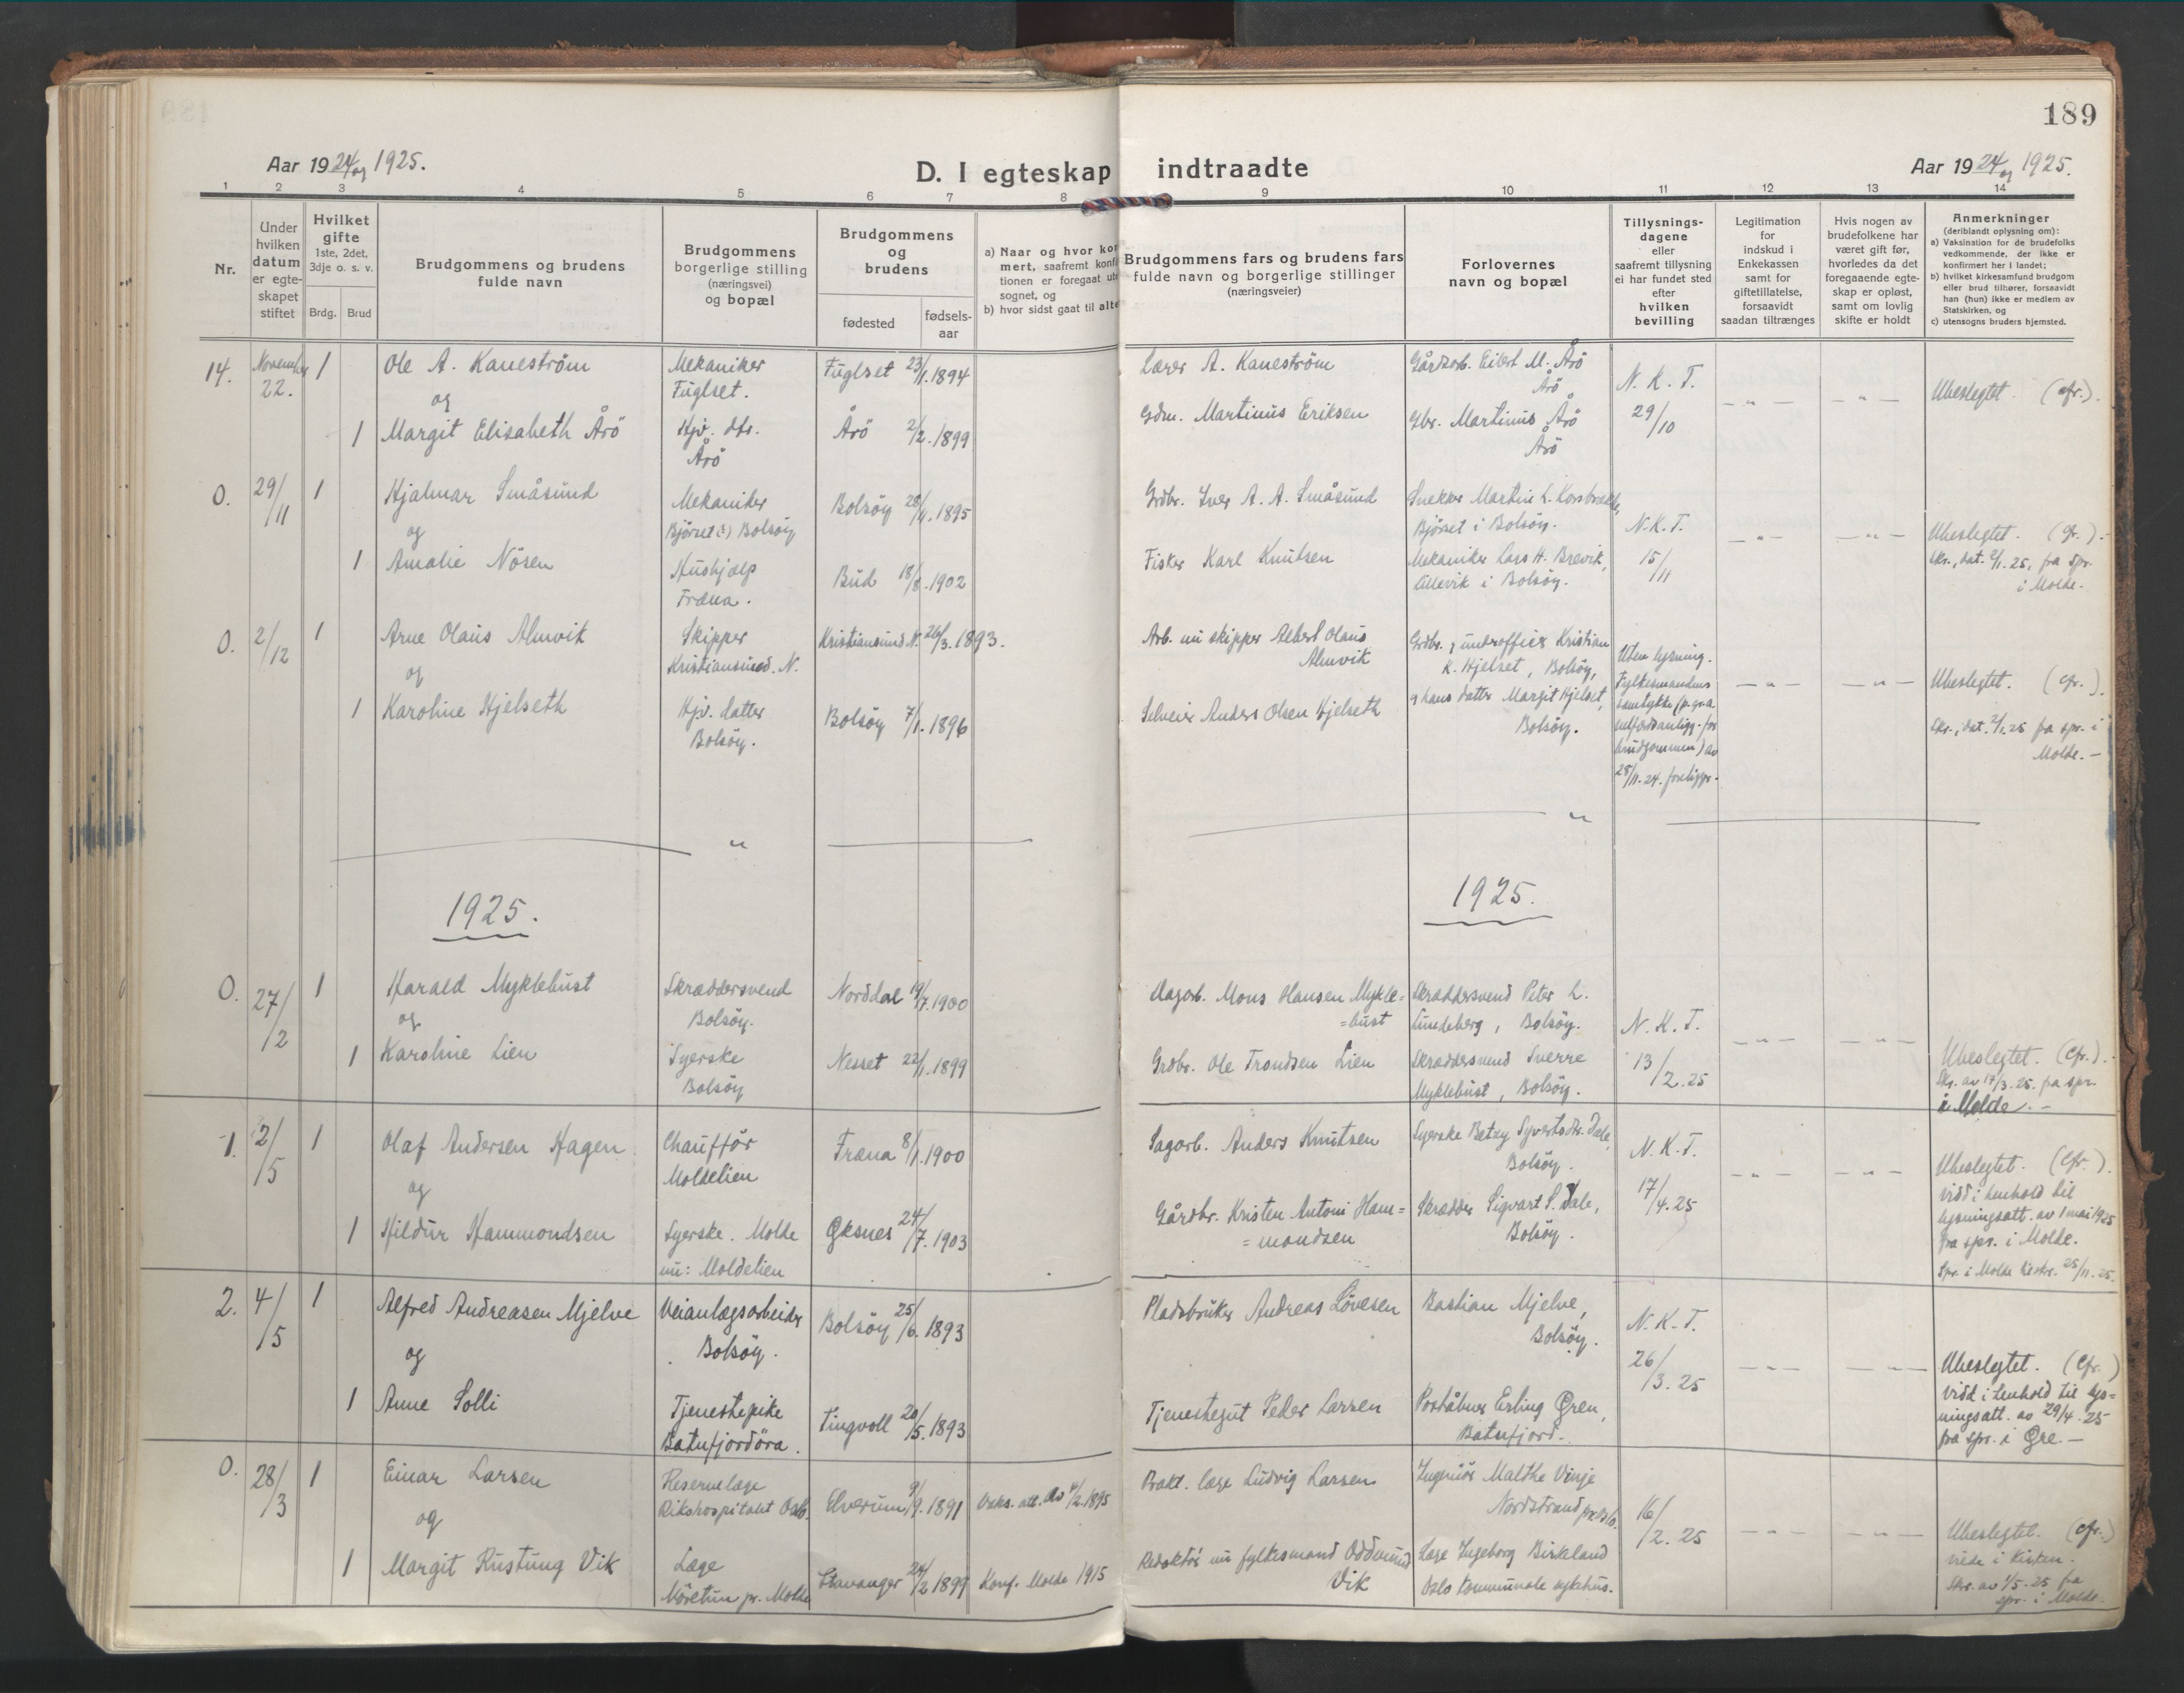 189
Aar 1924 og 1925.
D. I egteskap indtraadte
Aar 1924 og 1925.
1 2 3 4 5 6 7 8 9 10 11 12 13 14
Nr.
Under hvilken datum er egte-skapet stiftet
Hvilket gifte
1ste, 2det, 3dje o. s. v.
Brdg. Brud
Brudgommens og brudens fulde navn
Brudgommens borgerlige stilling (næringsvei) og bopæl
Brudgommens og brudens
fødested
fødsels-aar
a) Naar og hvor kon
mert, saafremt konfi
tionen er foregaat ute
sognet, og
b) hvor sidst gaat til alte
Brudgommens fars og brudens fars
fulde navn og borgerlige stillinger
(næringsveier)
Forlovernes
navn og bopæl
Tillysnings-
dagene
eller
saafremt tillysning
ei har fundet sted
efter
hvilken
bevilling
Legitimation
for
indskud i
Enkekassen
samt for
giftetillatelse,
forsaavidt
saadan tiltrænges
Hvis nogen av
brudefolkene har
været gift før,
hvorledes da det
foregaaende egte-
skap er opløst,
samt om lovlig
skifte er holdt
Anmerkninger
(deriblandt oplysning om):
a) Vaksination for de brudefolks
vedkommende, der ikke er
konfirmert her i landet;
b) hvilket kirkesamfund brudgom
eller brud tilhører, forsaavidt
han (hun) ikke er medlem av
Statskirken, og
c) utensogns bruders hjemsted.
14. November 22. 1 Ole A. Kaneström
og
Mekaniker
Fuglset.
Fuglset 23/11.1894
Lærer A. Kaneström
Gårdarb. Eilert M. Årö
Årö
N. K. T.
29/10
— " —
— " —
Ubeslegtet. (cfr.).
1 Margit Elisabeth Årö
Hjv. dtr.
Årö
Årö 2/2.1899
Gdm. Martinus Eriksen
Gbr. Martinus Årö
Årö
0. 29/11 1 Hjalmar Småsund
og
Mekaniker
Bjørset i Bolsöy
Bolsöy 28/4.1895
Grdbr. Iver A. A. Småsund
Snekker Martin L. Korsbrekke,
Bjørset i Bolsöy.
N. K. T.
15/11
— " —
— " —
Ubeslegtet. (cfr.).-
Skr., dat. 2/1.25, fra spr.
i Molde.
1 Amalie Nösen
Hushjælp
Fræna.
Bud 18/8.1902
Fisker Karl Knutsen
Mekaniker Lars H. Brevik,
Lillevik i Bolsöy.
0. 2/12 1 Arne Olaus Almvik
og
Skipper
Kristiansund. N.
Kristiansund N. 26/3.1893.
Arb. nu skipper Albert Olaus
Almvik
Grdbr. & underofficer Kristian
K. Hjelset, Bolsöy,
& hans datter Margit Hjelset,
Bolsöy.
Uten lysning.
Fylkesmandens
samtykke (p. gr. a
velfærdsanligg. for
brudgommen) av
28/11.24. foreligger.
— " —
— " —
Ubeslegtet. (cfr.).
Skr., dat. 2/1.25 fra spr. i
Molde. —
1 Karoline Hjelseth
Hjv. datter
Bolsöy.
Bolsöy 7/1.1896
Selveier Anders Olsen Hjelseth
"
"
1925.
1925.
0. 27/2 1 Harald Myklebust
og
Skræddersvend
Bolsöy.
Norddal 19/7.1900
Dagarb. Mons Hansen Mykle=
=bust
Skræddersvend Peter L.
Lundeberg, Bolsöy.
N. K. T.
13/2.25
— " —
— " —
Ubeslegtet. (cfr.).-
Skr. av 17/3.25. fra spr.
i Molde. —
1 Karoline Lien
Syerske
Bolsöy
Nesset 22/1.1899
Grdbr. Ole Trondsen Lien
Skræddersvend Sverre
Myklebust, Bolsöy.
1. 2/5 1 Olaf Andersen Hagen
og
Chaufför
Moldelien
Fræna 8/1.1900
Sagarb. Anders Knutsen
Syerske Betzy Syvertsdtr. Dale,
Bolsöy.
N. K. T.
17/4.25
— " —
— " —
Ubeslegtet. (cfr.).
Viid i henhold til
lysningsatt. av 1 mai 1925
fra spr. i Molde.
Spr. i Molde tilskr. 25/11.25.
1 Hildur Hammondsen
Syerske. Molde
nu: Moldelien
Øksnes 24/7.1903
Gårdbr. Kristen Antoni Ham=
=mondsen
Skrædder Sigvart S. Dale,
Bolsöy.
2. 4/5 1 Alfred Andreasen Mjelve
og
Veianlægsarbeider
Bolsöy.
Bolsöy 25/6.1893
Pladsbruker Andreas Lövesen
Bastian Mjelve,
Bolsöy.
N. K. T.
26/3.25
— " —
— " —
Ubeslegtet. (Cfr.)
Viid i henhold til lys=
ningsatt. av 29/4.25
fra spr. i Øre. —
1 Anne Solli
Tjenestepike
Batnfjordöra.
Tingvoll 20/5.1893
Tjenestegut Peder Larsen
Poståbner Erling Gren,
Batnfjord.
0. 28/3 1 Einar Larsen
og
Reservelæge
Rikshospitalet Oslo.
Elverum 9/9.1891
Vaks. att. av 4/2.1895
Prakt. læge Ludvig Larsen
Ingeniör Malthe Vinje
Nordstrand pr. Oslo.
16/2.25
— " —
— " —
Ubeslegtet. (cfr.)
viede i kirken.
Skr. av 1/5.25 fra
spr. i Molde.
1 Margit Rustung Vik
Læge
Möretun pr. Molde
Stavanger 24/2 1899
Konf. Molde 1915
Redaktör nu fylkesmand Oddmund
Vik
Læge Ingeborg Birkeland
Oslo kommunale sykehus.